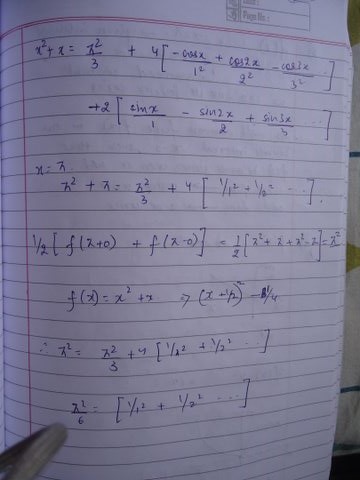 Page No :
x² + x = π²/3 + 4 [ -cosx/1² + cos2x/2² - cos3x/3² . . ]
+ 2 [ sinx/1 - sin2x/2 + sin3x/3 ]
x = π.
π² + π = π²/3 + 4 [ 1/1² + 1/2² . . . ].
1/2 [ f(π+0) + f(π-0) ] = 1/2 [ π² + π + π² - π ] = π²
f(x) = x² + x ⇒ (x + 1/2)² - 1/4
∴ π² = π²/3 + 4 [ 1/1² + 1/2² . . ]
π²/6 = [ 1/1² + 1/2² . . . ]